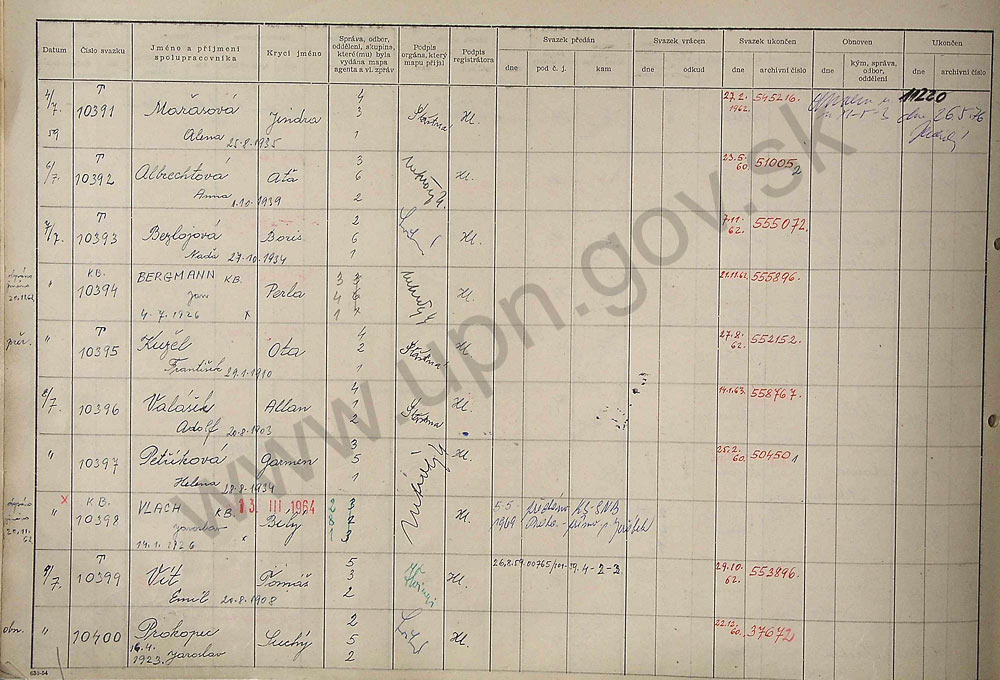 Datum
Číslo svazku
Jméno a příjmení
spolupracovníka
Krycí jméno
Správa, odbor,
oddělení, skupina,
které(mu) byla
vydána mapa
agenta a vl. zpráv
Podpis
orgána, který
mapu přijal
Podpis
registrátora
Svazek předán
dne
pod č. j.
kam
Svazek vrácen
dne
odkud
Svazek ukončen
dne
archivní číslo
Obnoven
dne
kým, správa,
odbor,
oddělení
Ukončen
dne
archivní číslo
4/7. 59
T
10391
Mařasová
Alena 25.8.1935
Jindra
4
3
1
Šťastna
Kl.
27.2.
1962.
545216.
11220
dne 26.5.76
6/7.
T
10392
Albrechtová
Anna 1.10.1939
Ata
3
6
2
Kl.
23.5.
60.
51005
2
7/7.
T
10393
Bezlojová
Naďa 27.10.1934
Boris
2
6
1
Kl.
7.11.
62.
555072.
20.11.62
"
KB.
10394
BERGMANN KB.
Jan
4.7.1926 x
Perla
3 3
4 6
1 7
Kl.
21.11.62.
555896.
"
T
10395
Kužel
František 29.1.1910
Ota
4
2
1
Šťastna
Kl.
27.8.
62.
552152.
8/7.
10396
Valášek
Adolf 20.8.1903
Allan
4
1
2
Šťastna
Kl.
14.1.63.
558767.
"
10397
Petříková
Helena 28.8.1934
Garmen
3
5
1
Kl.
25.2.
60.
50450
1
20.11.
62
x
"
KB.
10398
VLACH KB.
13 III 1964
Jaroslav
14.1.1926
Bělý
2 3
8 7
1 3
Kl.
5.5
1969
předáno KS-SNB
9/7.
T
10399
Vít
Emil 20.8.1908
Tomáš
5
3
2
Kl.
26.8.59.
4-2-3.
29.10.
62.
553896.
obn.
"
10400
Prokopec
16.4.
1923. Jaroslav
Suchý
2
5
2
Kl.
22.12.
60.
37672
www.upn.gov.sk